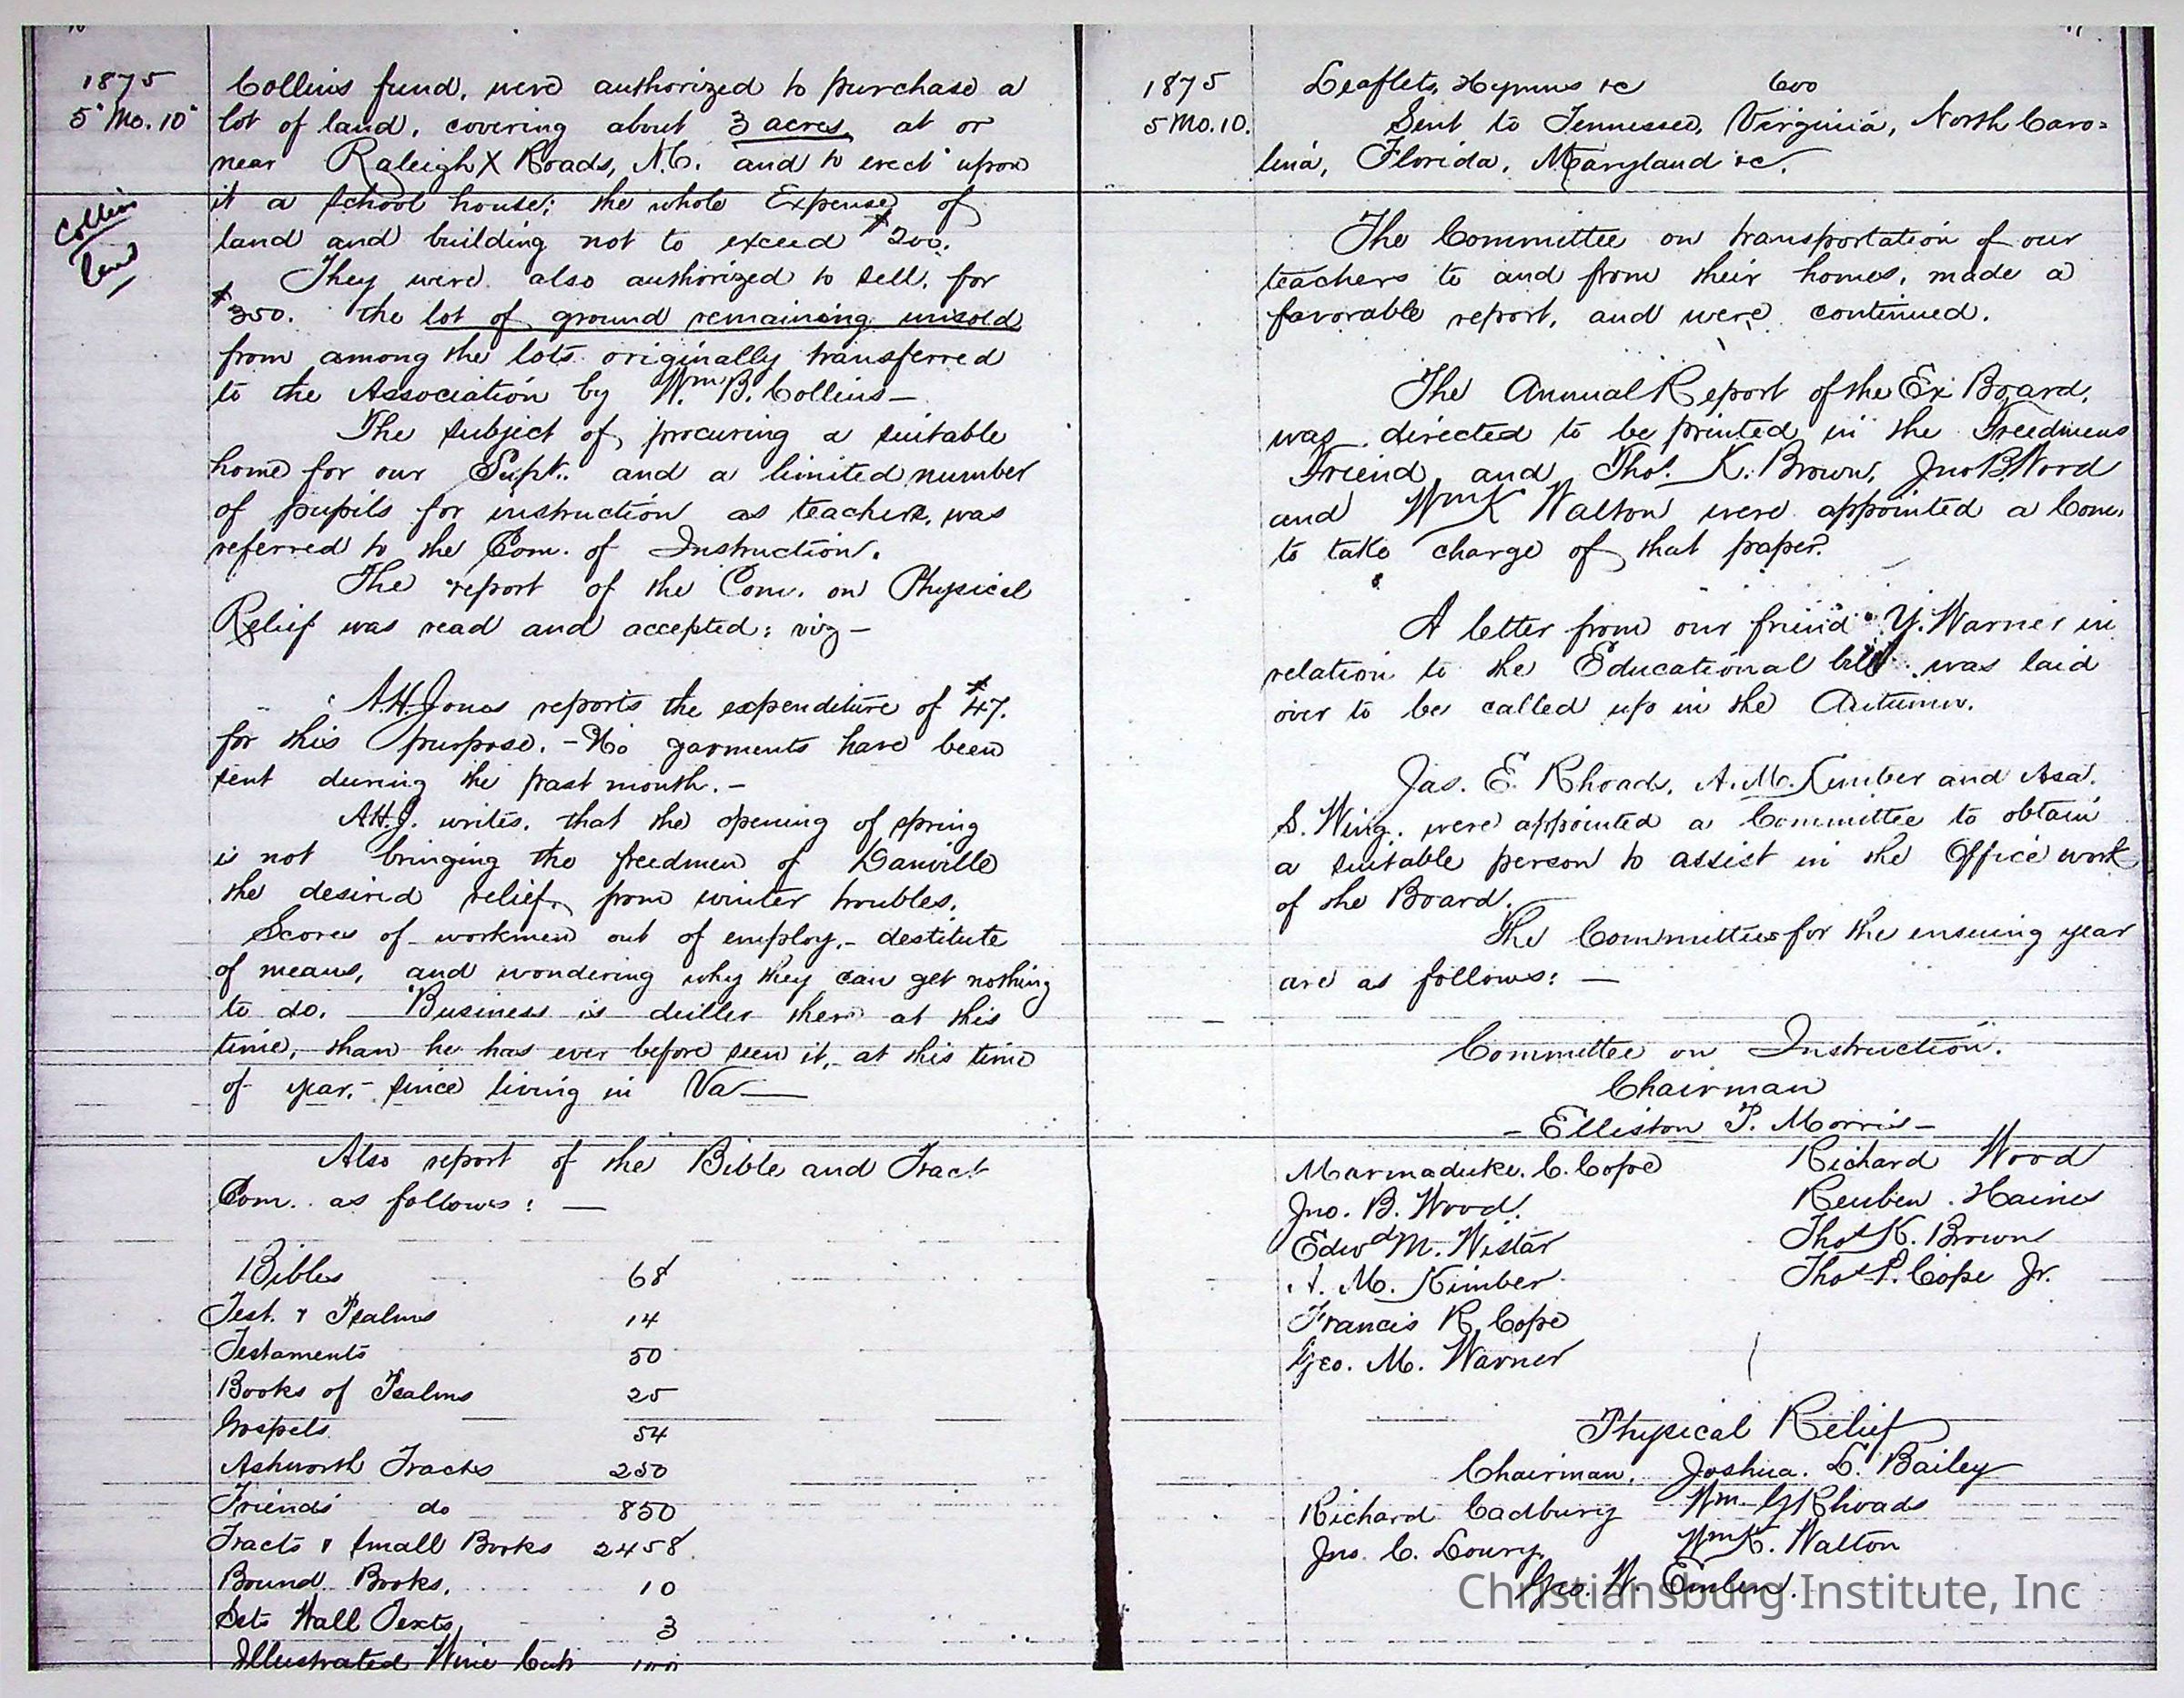 1875
5 Mo. 10
Collins fund, were authorized to purchase a
lot of land, covering about 3 acres, at or
near Raleigh X Roads, N.C. and to erect upon
it a school house; the whole Expense of
land and building not to exceed $200.
Collins
land
They were also authorized to sell, for
$350. the lot of ground remaining unsold
from among the lots originally transferred
to the Association by Wm B. Collins—
The subject of procuring a suitable
home for our Supt. and a limited number
of pupils for instruction as teachers, was
referred to the Com. of Instruction.
The report of the Com. on Physical
Relief was read and accepted; viz—
A.H. Jones reports the expenditure of $47.
for this purpose. – No garments have been
sent during the past month. –
A.H.J. writes, that the opening of spring
is not bringing the freedmen of Danville
the desired relief from winter troubles.
Scores of workmen out of employ, – destitute
of means, and wondering why they can get nothing
to do. Business is duller there at this
time, than he has ever before seen it, at this time
of year, – since living in Va —
Also report of the Bible and Tract
Com. as follows: —
Bibles 68
Test. & Psalms 14
Testaments 50
Books of Psalms 25
Gospels 54
Ashworth Tracts 250
Friends' do 850
Tracts & Small Books 2458
Bound Books. 10
Sets Wall Texts 3
Illustrated 100
11
1875
5 Mo. 10.
Leaflets, Hymns &c 600
Sent to Tennessee, Virginia, North Caro=
lina, Florida, Maryland &c.
The Committee on transportation of our
teachers to and from their homes, made a
favorable report, and were continued.
The Annual Report of the Ex Board,
was directed to be printed in the Freedmens
Friend and Thos. K. Brown, Jno B. Wood
and Wm K Walton were appointed a Com.
to take charge of that paper.
A letter from our friend Y. Warner in
relation to the Educational bill was laid
over to be called up in the Autumn.
Jas. E. Rhoads, A. M. Kimber and Asa
S. Wing. were appointed a Committee to obtain
a suitable person to assist in the Office work
of the Board.
The Committees for the ensuing year
are as follows: —
Committee on Instruction.
Chairman
– Elliston P. Morris –
Marmaduke. C. Cope Richard Wood
Jno. B. Wood. Reuben Haines
Edwd M. Wistar Thos K. Brown
A. M. Kimber Thos P. Cope Jr.
Francis R. Cope
Geo. M. Warner
Physical Relief
Chairman, Joshua. L. Bailey
Richard Cadbury Wm. G Rhoads
Jno. C. Lowry Wm K. Walton
Geo. W. Emlen.
Christiansburg Institute, Inc